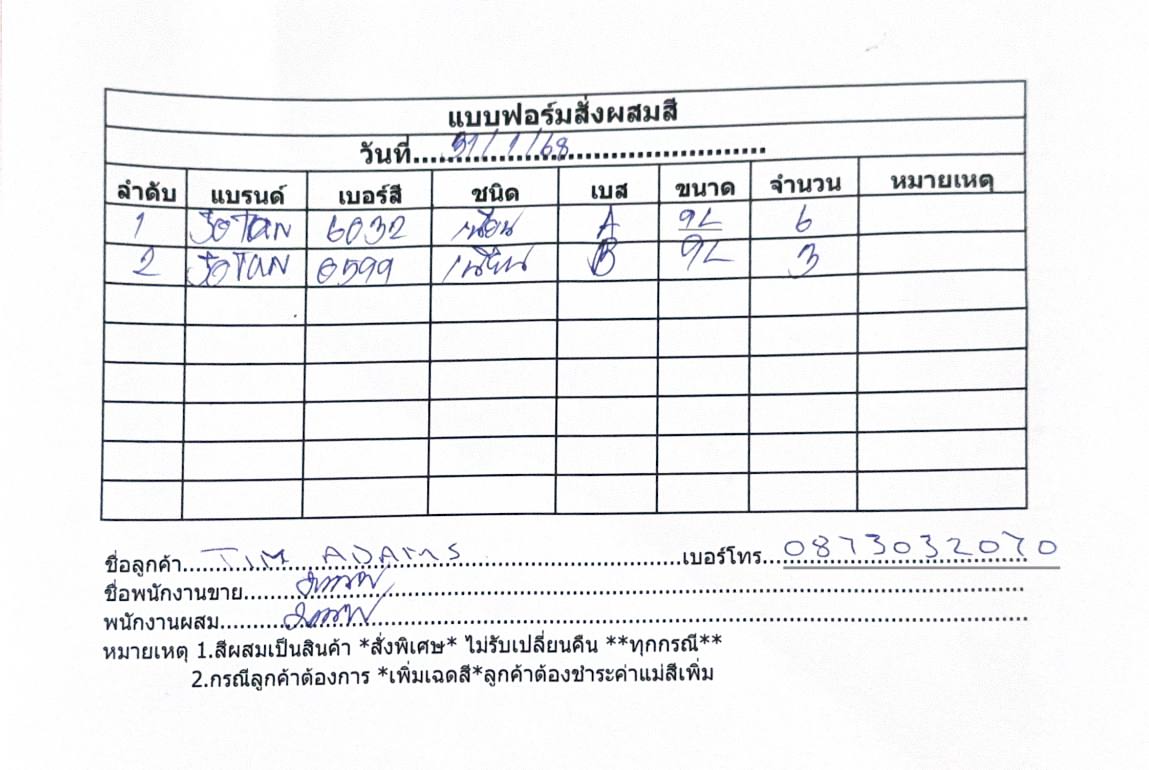 แบบฟอร์มสั่งผสมสี
วันที่ 31/1/68
ลำดับ แบรนด์ เบอร์สี ชนิด เบส ขนาด จำนวน หมายเหตุ
1 JOTUN 6032 เนียน A 9L 6
2 JOTUN 0599 เนียน B 9L 3
ชื่อลูกค้า TIM ADAMS เบอร์โทร 0873032070
ชื่อพนักงานขาย
พนักงานผสม
หมายเหตุ 1.สีผสมเป็นสินค้า *สั่งพิเศษ* ไม่รับเปลี่ยนคืน **ทุกกรณี**
2.กรณีลูกค้าต้องการ *เพิ่มเฉดสี*ลูกค้าต้องชำระค่าแม่สีเพิ่ม